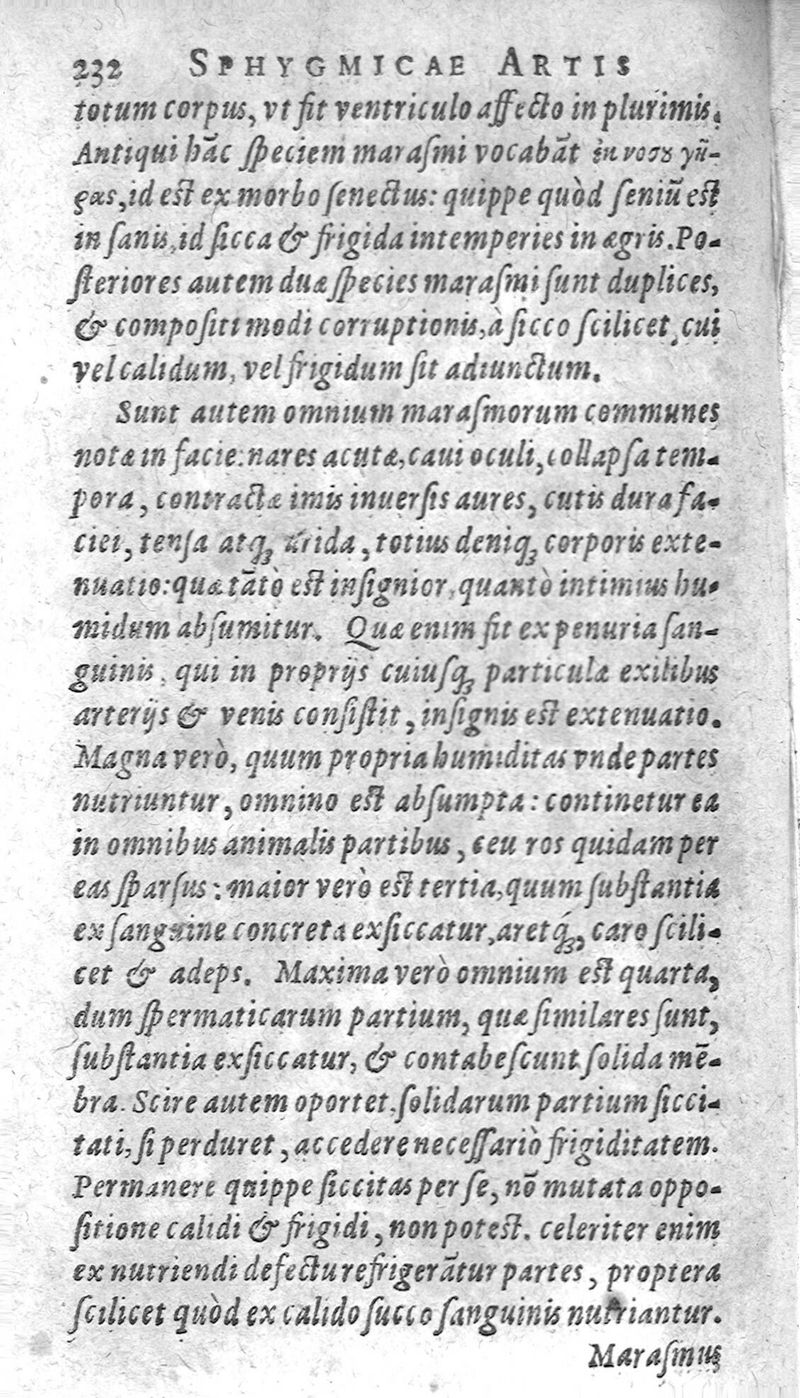 232 SPHYGMICAE ARTIS
totum corpus, vt fit ventriculo affecto in plurimis.
Antiqui hãc ſpeciem maraſmi vocabãt ἐκ νοσου γῆ-
ρας, id eſt ex morbo ſenectus: quippe quòd ſeniũ eſt
in ſanis, id ſicca & frigida intemperies in ægris. Po-
ſteriores autem duæ ſpecies maraſmi ſunt duplices,
& compoſiti modi corruptionis, à ſicco ſcilicet, cui
vel calidum, vel frigidum ſit adiunctum.
Sunt autem omnium maraſmorum communes
notæ in facie: nares acutæ, caui oculi, collapſa tem-
pora, contractæ imis inuerſis aures, cutis dura fa-
ciei, tenſa atq; arida, totius deniq; corporis exte-
nuatio: quæ tãtò eſt inſignior, quantò intimius hu-
midum abſumitur. Quæ enim fit ex penuria ſan-
guinis, qui in proprijs cuiuſq; particulæ exilibus
arterijs & venis conſiſtit, inſignis eſt extenuatio.
Magna verò, quum propria humiditas vnde partes
nutriuntur, omnino eſt abſumpta: continetur ea
in omnibus animalis partibus, ceu ros quidam per
eas ſparſus: maior verò eſt tertia, quum ſubſtantia
ex ſanguine concreta exſiccatur, aretq́;, caro ſcili-
cet & adeps. Maxima verò omnium eſt quarta,
dum ſpermaticarum partium, quæ ſimilares ſunt,
ſubſtantia exſiccatur, & contabeſcunt ſolida mẽ-
bra. Scire autem oportet, ſolidarum partium ſicci-
tati, ſi perduret, accedere neceſſariò frigiditatem.
Permanere quippe ſiccitas per ſe, nõ mutata oppo-
ſitione calidi & frigidi, non poteſt. celeriter enim
ex nutriendi defectu refrigerãtur partes, proptera
ſcilicet quòd ex calido ſucco ſanguinis nutriantur.
Maraſmus